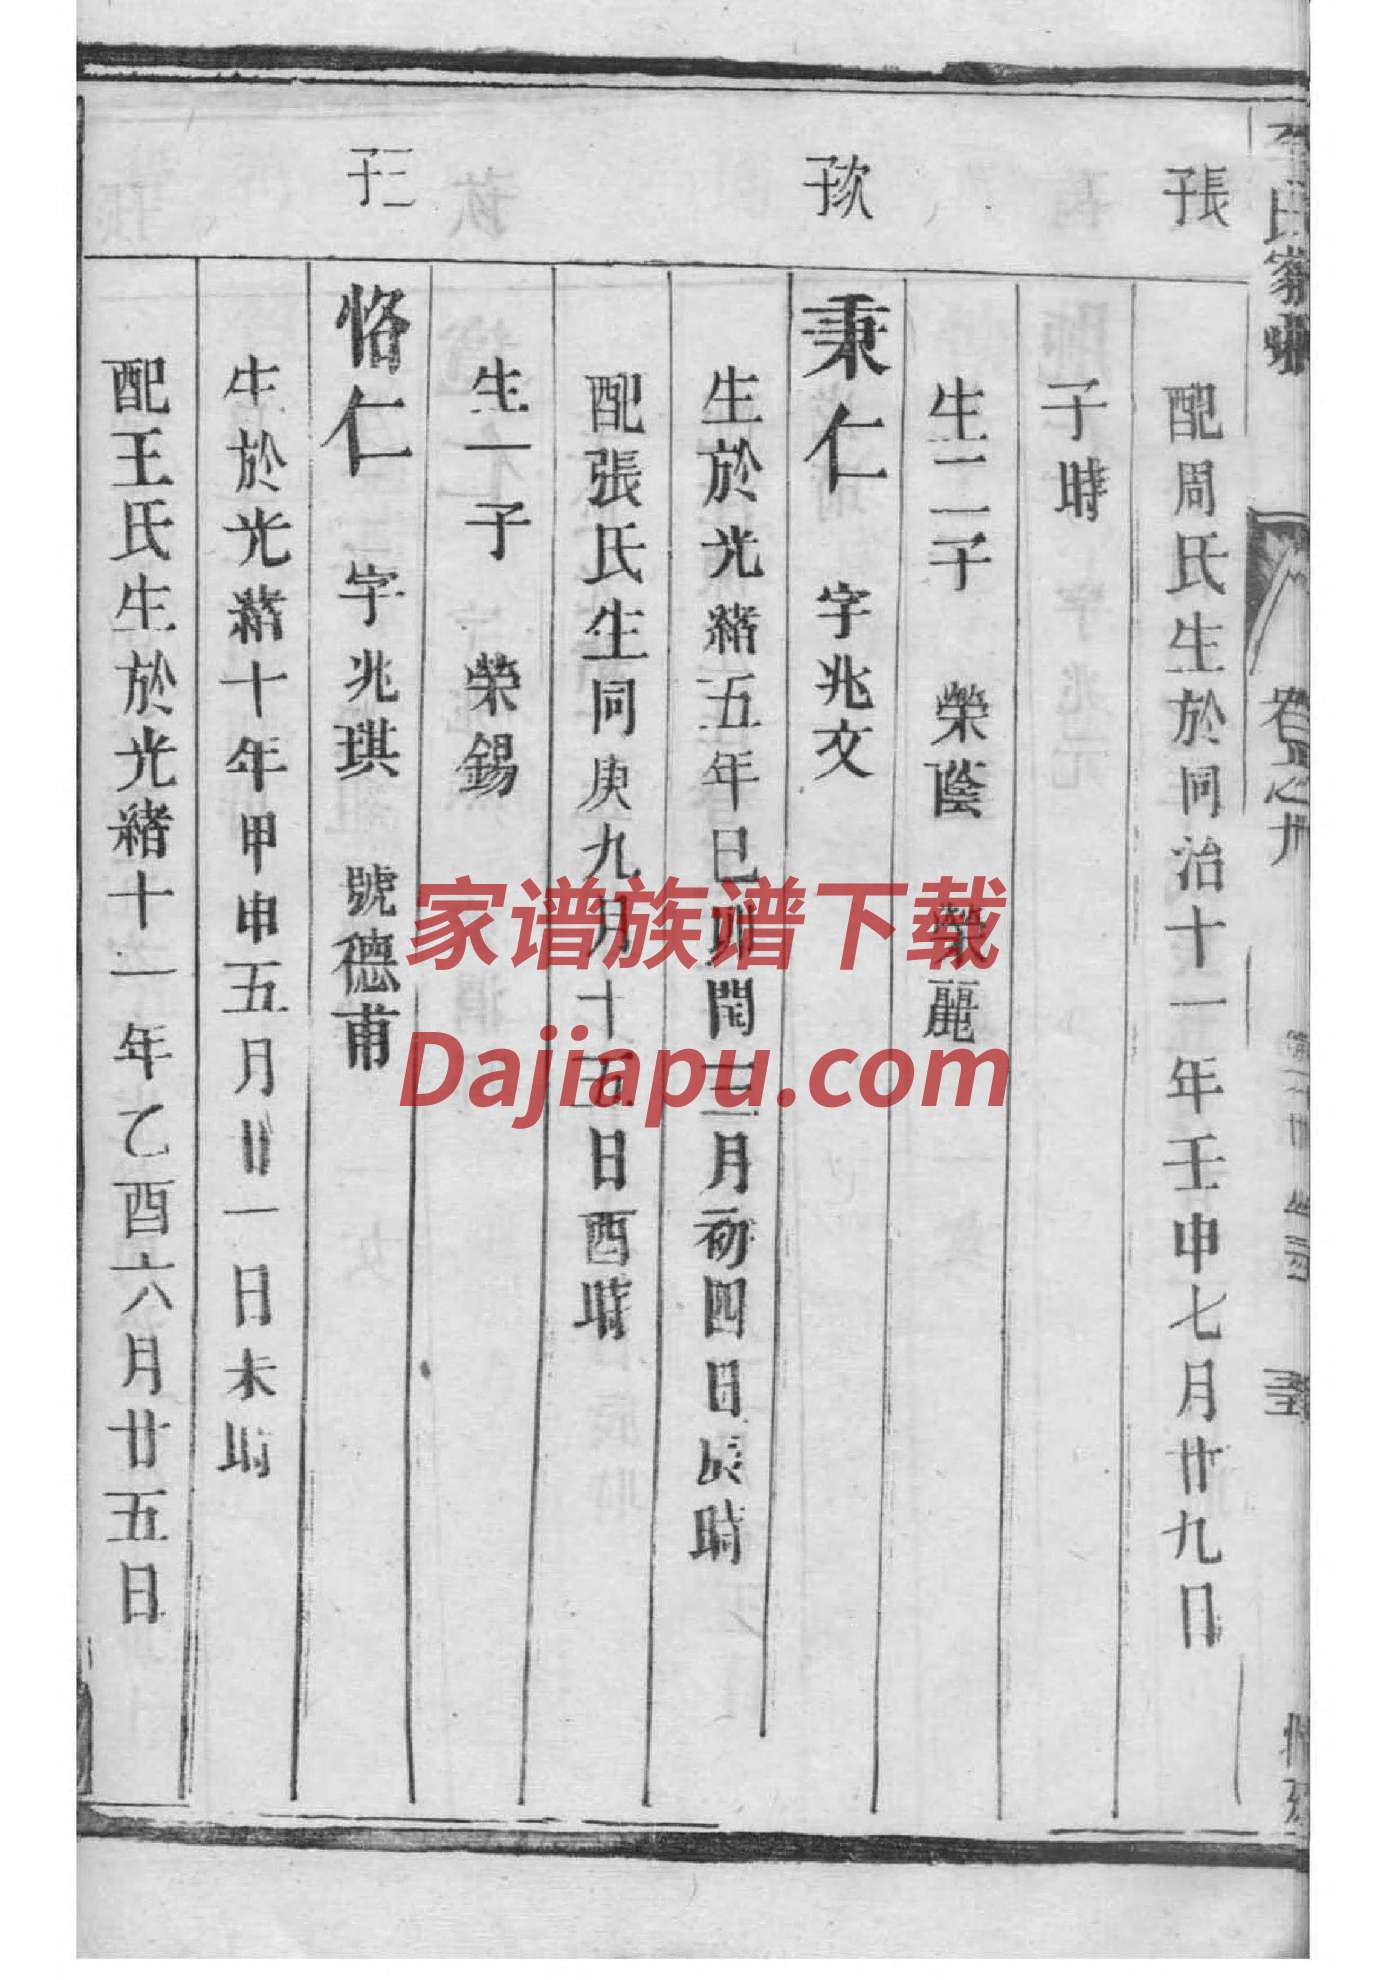 氏家
卷之卅
子長
配周氏生於同治十一年壬申七月廿九日
子時
生二子 榮蔭 榮麗
子次
秉仁 字兆文
生於光緒五年己卯閏三月初四日辰時
配張氏生同庚九月十五日酉時
生一子 榮錫
子三
恪仁 字兆琪 號德甫
生於光緒十年甲申五月廿一日未時
配王氏生於光緒十一年乙酉六月廿五日
家谱族谱下载
Dajiapu.com